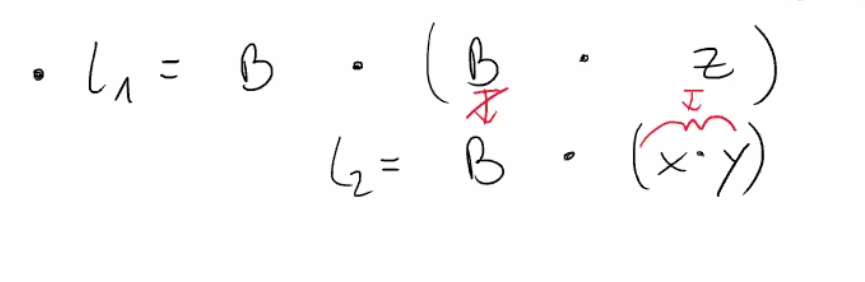 • l₁ = B · (B · z)
I I
l₂ = B · (x · y)